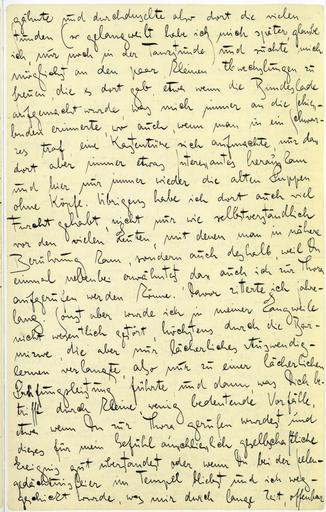 gähnte und durchduselte aber dort die vielen
Stunden (so gelangweilt habe ich mich später glaube
ich, nur noch in der Tanzstunde) und suchte mich
möglichst an den paar kleinen Abwechslungen zu
freuen, die es dort gab etwa wenn die Bundeslade
aufgemacht wurde, was mich immer an die Schieß-
buden erinnerte, wo auch, wenn man in ein Schwar-
zes traf, eine Kastentüre sich aufmachte, nur dass
dort aber immer etwas Interessantes herauskam
und hier nur immer wieder die alten Puppen
ohne Köpfe. Übrigens habe ich dort auch viel
Furcht gehabt, nicht nur wie selbstverständlich
vor den vielen Leuten, mit denen man in nähere
Berührung kam, sondern auch deshalb, weil Du
einmal nebenbei erwähntest, dass auch ich zur Thora
aufgerufen werden könne. Davor zitterte ich jahre-
lang. Sonst aber wurde ich in meiner Langweile
nicht wesentlich gestört, höchstens durch die Bar-
mizwe, die aber nur lächerliches Auswendig-
lernen verlangte, also nur zu einer lächerlichen
Prüfungsleistung führte und dann was Dich be-
trifft durch kleine, wenig bedeutende Vorfälle,
etwa wenn Du zur Thora gerufen wurdest und
dieses für mein Gefühl ausschließlich gesellschaftliche
Ereignis gut überstandest oder wenn Du bei der Seelen-
gedächtnisfeier im Tempel bliebst und ich weg-
geschickt wurde, was mir durch lange Zeit, offenbar